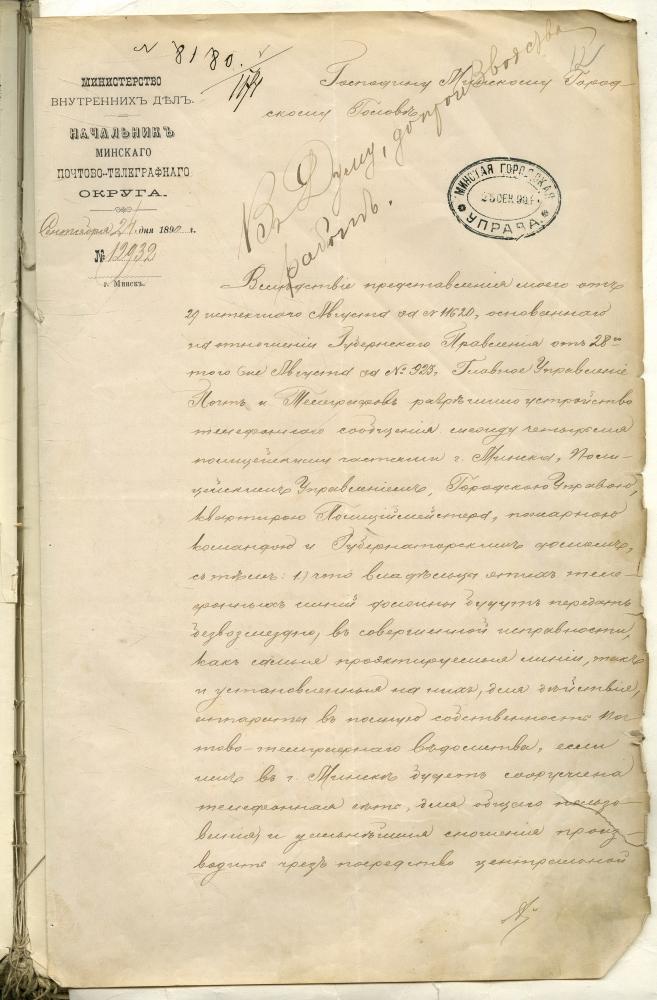 N 8180.
174
12
МИНИСТЕРСТВО
ВНУТРЕННИХЪ ДѢЛЪ.
НАЧАЛЬНИКЪ
МИНСКАГО
ПОЧТОВО-ТЕЛЕГРАФНАГО
ОКРУГА.
Сентября 24 дня 1890 г.
№ 12932
г. Минскъ.
Господину Минскому Город-
скому Головѣ
Въ Думу, до производства
работъ.
МИНСКАЯ ГОРОДСКАЯ
25 СЕН. 90 Г.
УПРАВА.
Вслѣдствіе представленія моего отъ
29 истекшаго Августа за № 11620, основаннаго
на отношеніи Губернскаго Правленія отъ 28го
того же Августа за № 923, Главное Управленіе
Почтъ и Телеграфовъ разрѣшило устройство
телефоннаго сообщенія между четырьмя
полицейскими частями г. Минска, Поли-
цейскимъ Управленіемъ, Городскою Управою,
квартирою Полиціймейстера, пожарною
командою и Губернаторскимъ домомъ,
съ тѣмъ: 1) что владѣльцы этихъ теле-
фонныхъ линій должны будутъ передать
безвозмездно, въ совершенной исправности,
какъ самыя проэктируемыя линіи, такъ
и установленныя на нихъ, для дѣйствія,
аппараты въ полную собственность поч-
тово-телеграфнаго вѣдомства, если
имъ въ г. Минскѣ будетъ сооружена
телефонная сѣть, для общаго пользо-
ванія, и дальнѣйшія сношенія произ-
водить чрезъ посредство центральной